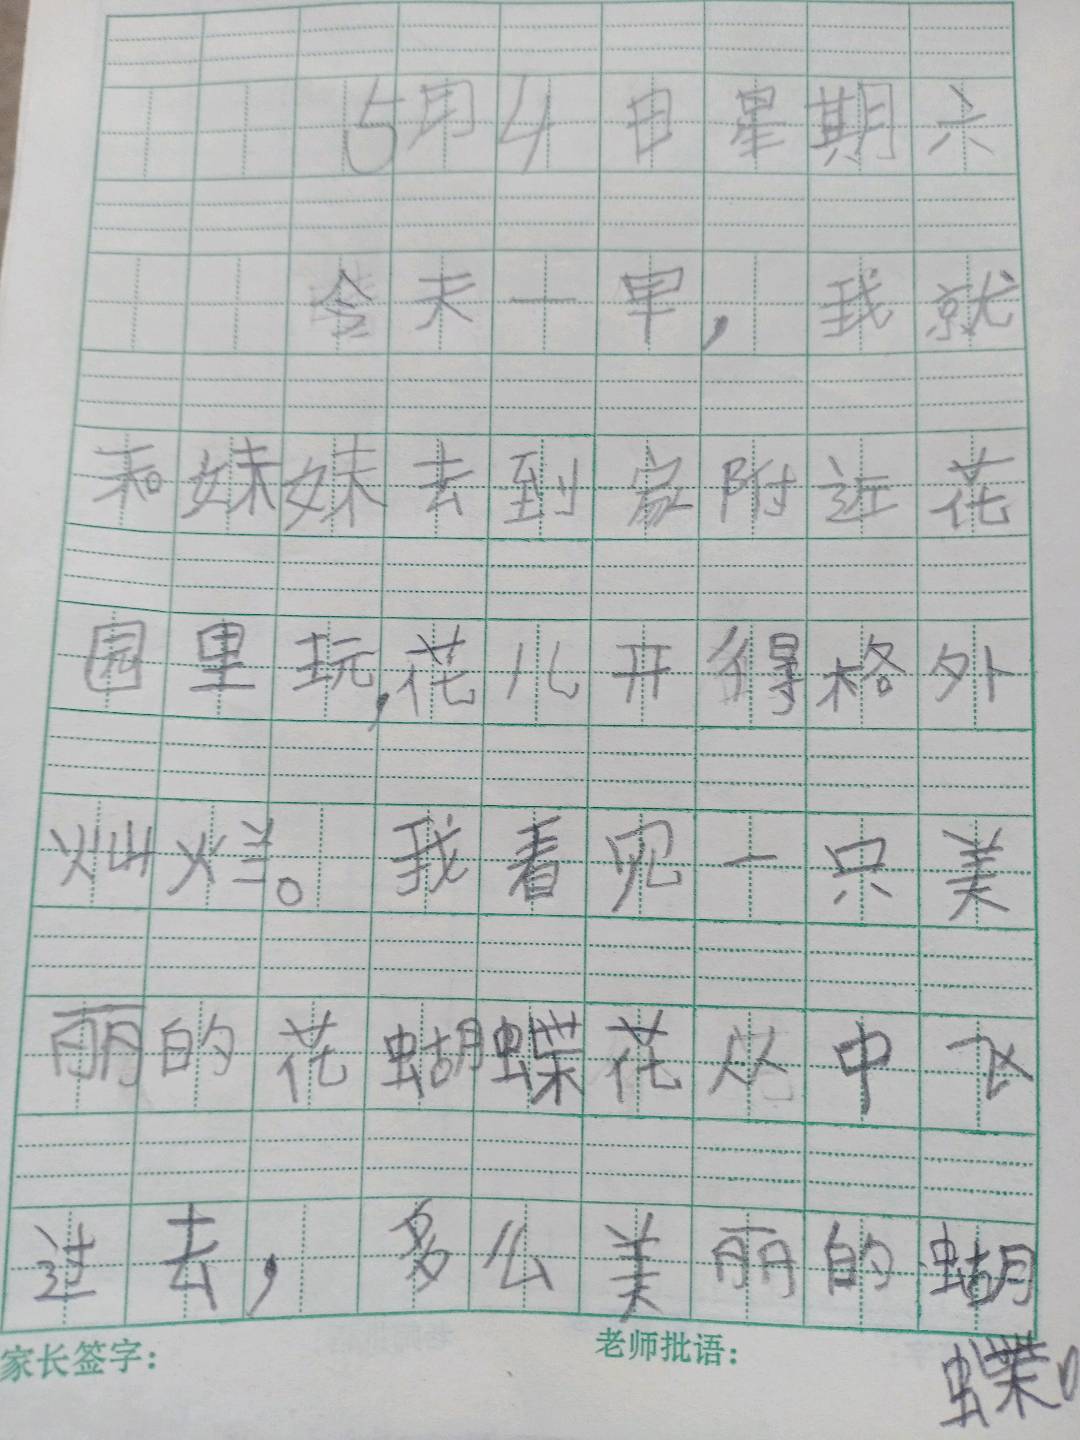 5月4日星期六
今天一早，我就
和妹妹去到家附近花
园里玩，花儿开得格外
灿烂。我看见一只美
丽的花蝴蝶花从中飞
过去，多么美丽的蝴
蝶。
家长签字：
老师批语：